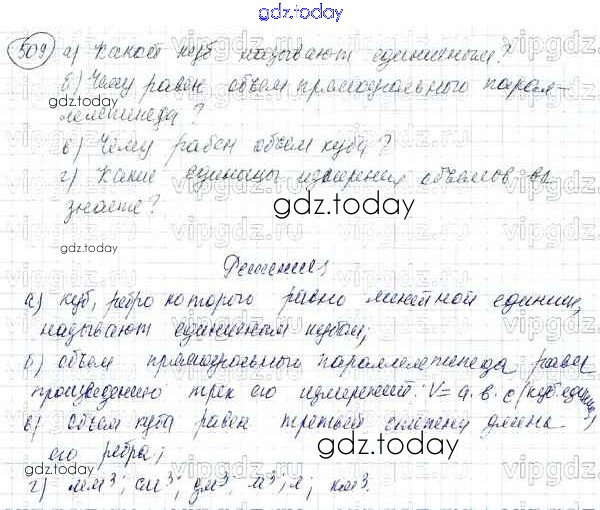 gdz.today
509 а) Какой куб называют единичным?
б) Чему равен объем прямоугольного парал-
gdz.today
лелепипеда?
в) Чему равен объем куба?
г) Какие единицы измерения объемов вы
знаете?
gdz.today
gdz.today
Решение
а) куб, ребро которого равно линейной единице,
называют единичным кубом;
б) объем прямоугольного параллелепипеда равен
произведению трех его измерений: V= а. в. с (куб. единиц)
в) объем куба равен третьей степени длины
его ребра;
gdz.today
г) мм³; см³; дм³; м³; л; км³.
gdz.today